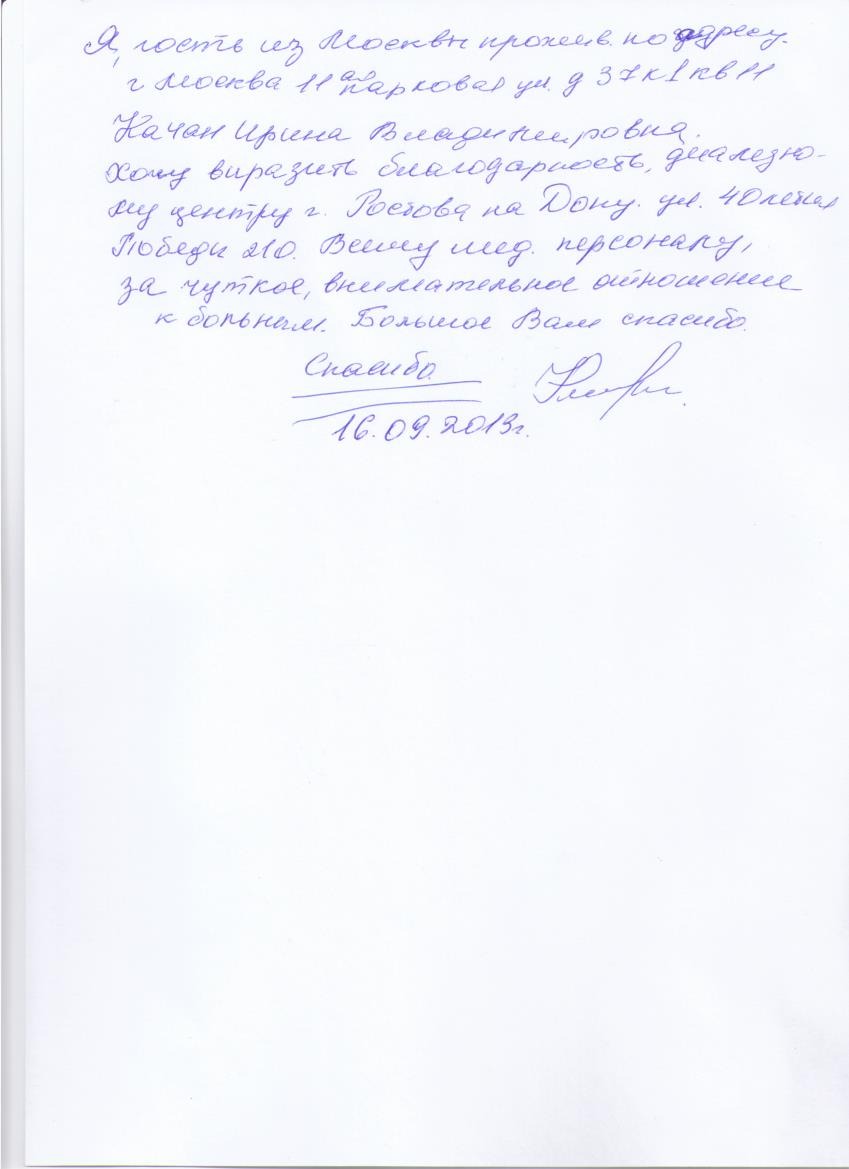 Я, гость из Москвы прожив. по адресу.
г Москва 11ая парковая ул. д 37 к 1 кв 11
Качан Ирина Владимировна.
хочу выразить благодарность, диализно-
му центру г. Ростова на Дону. ул. 40 летия
Победы 210. Всему мед. персоналу,
за чуткое, внимательное отношение
к больным. Большое Вам спасибо.
Спасибо.
16.09.2013г.